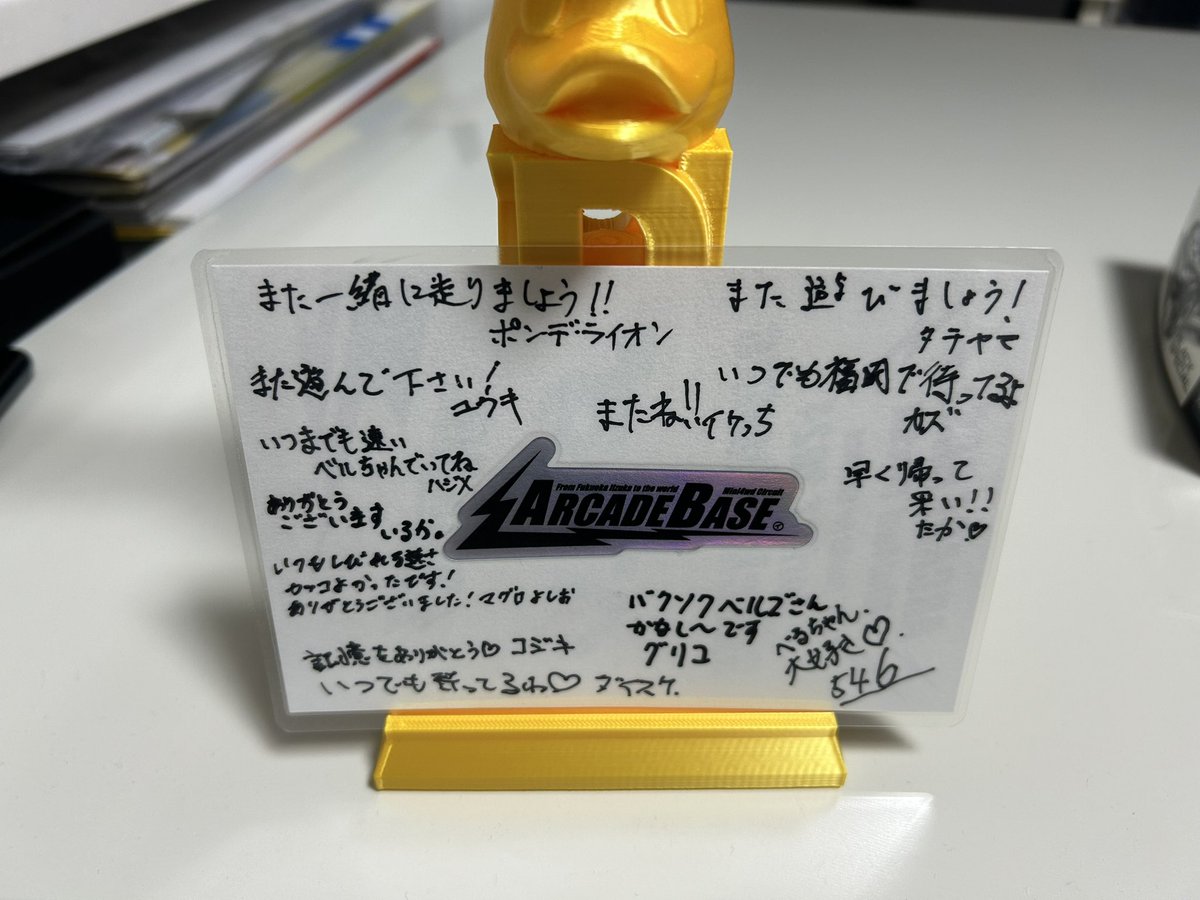 また一緒に走りましょう!!
ポンデライオン
また遊びましょう!
タテヤマ
また遊んで下さい!
ユウキ
またね!!イケっち
いつでも福岡で待ってるよ
カズ
いつまでも速い
ベルちゃんでいてね
ハジメ
早く帰って
来い!!
たか♡
ありがとう
ございます
いるか。
From Fukuoka Iizuka to the world
Mini4wd Circuit
ARCADE BASE
いつもしびれる速さ
カッコよかったです!
ありがとうございました!マグロよしお
バクソクベルゴさん
かなし〜です
グリコ
べるちゃん.
大好き♡.
546
記憶をありがとう♡ コジキ
いつでも待ってるわ♡ ダイスケ.